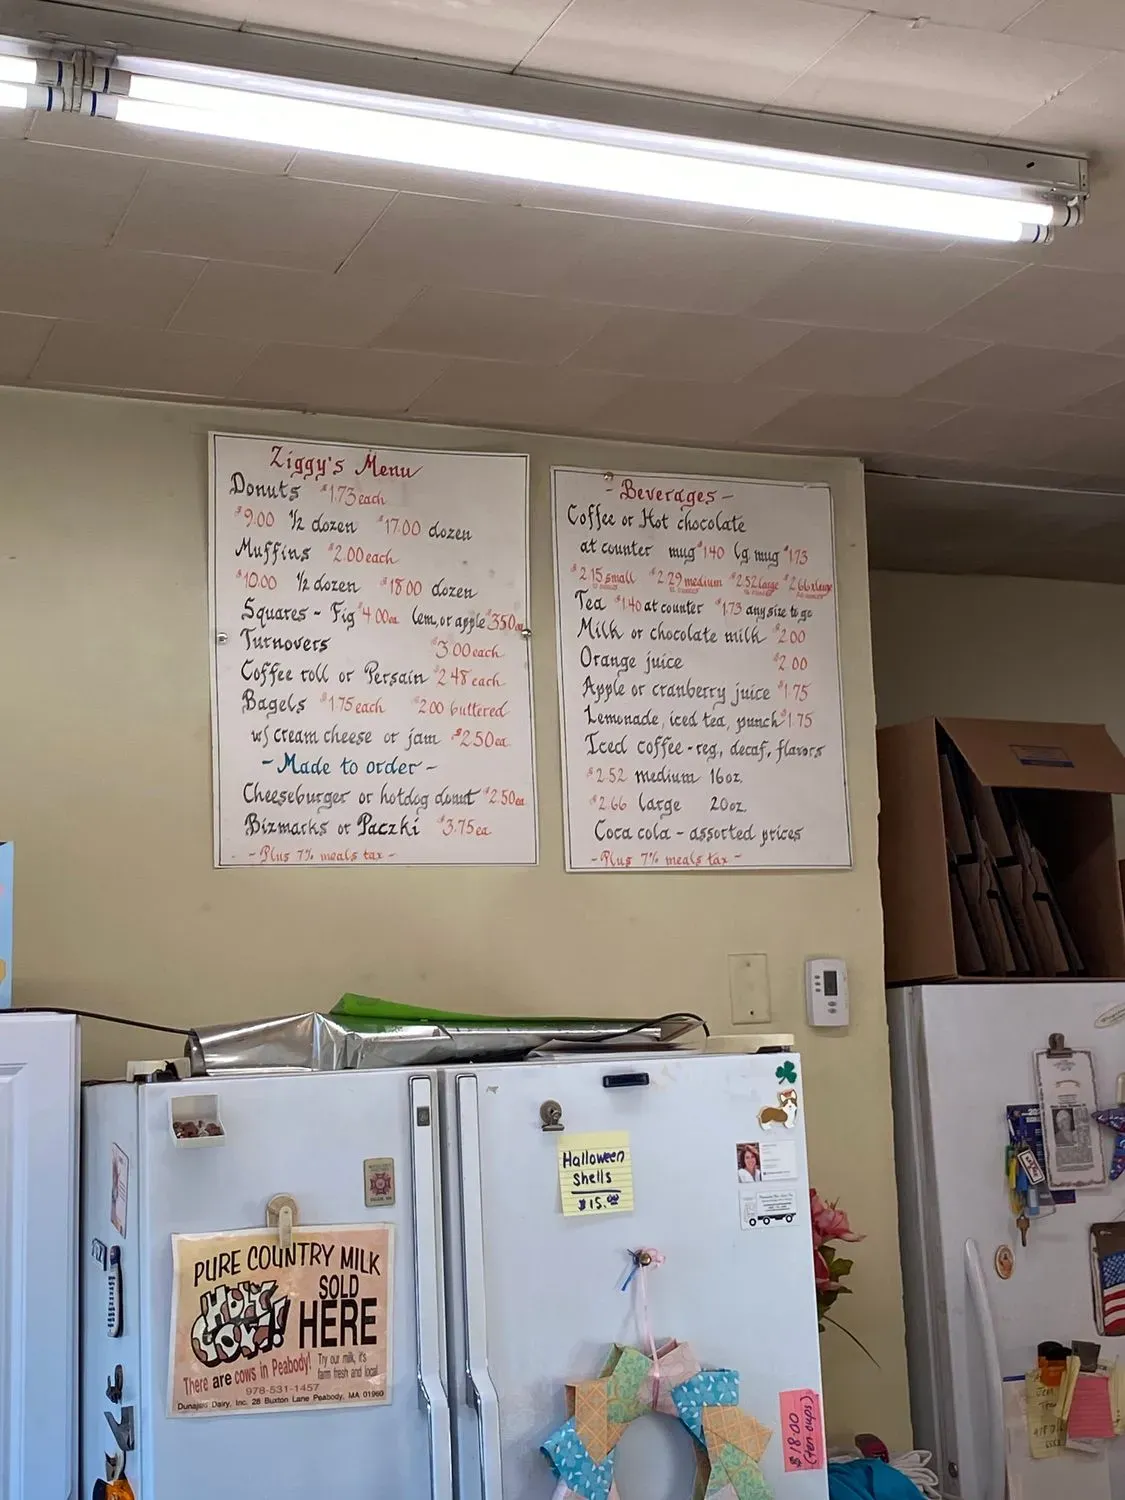 Ziggy's Menu
Donuts $1.73 each
$9.00 1/2 dozen $17.00 dozen
Muffins $2.00 each
$10.00 1/2 dozen $18.00 dozen
Squares - Fig $4.00ea lem, or apple 3.50ea
Turnovers $3.00 each
Coffee roll or Persain $2.48 each
Bagels $1.75 each $2.00 buttered
w/ cream cheese or jam $2.50ea
- Made to order -
Cheeseburger or hotdog donut $2.50ea
Bizmarks or Paczki $3.75ea
- Plus 7% meals tax -
- Beverages -
Coffee or Hot chocolate
at counter mug $1.40 lg. mug $1.73
$2.15 small $2.29 medium $2.52 large $2.66 xlarge
Tea $1.40 at counter $1.73 any size to go
Milk or chocolate milk $2.00
Orange juice $2.00
Apple or cranberry juice $1.75
Lemonade, iced tea, punch $1.75
Iced coffee - reg., decaf, flavors
$2.52 medium 16oz.
$2.66 large 20oz.
Coca cola - assorted prices
- Plus 7% meals tax -
Halloween
Shells
$15.00
PURE COUNTRY MILK
HOLY COW!
SOLD
HERE
There are cows in Peabody!
Try our milk, it's
farm fresh and local
978-531-1457
Dunajski Dairy, Inc. 28 Buxton Lane Peabody, MA 01960
$18.00
(ten cups)